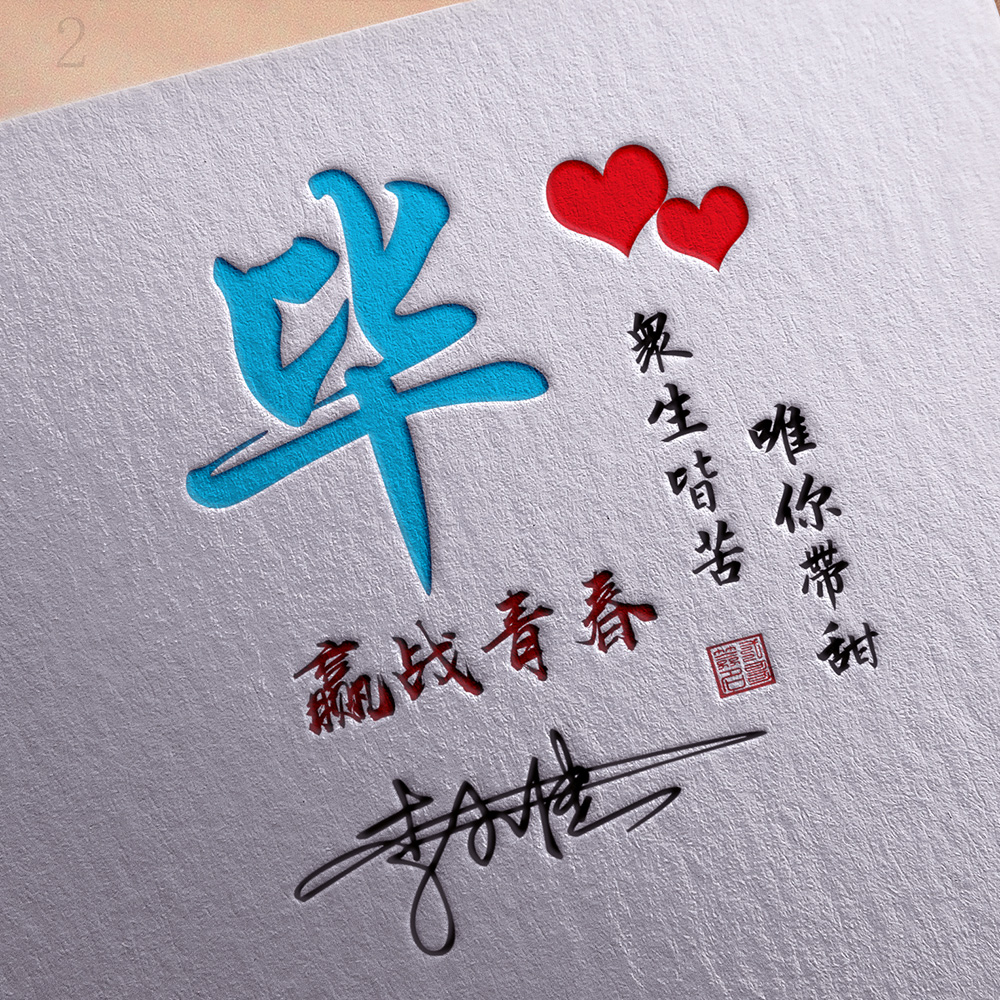 2
毕
眾生皆苦
唯你帶甜
赢战青春